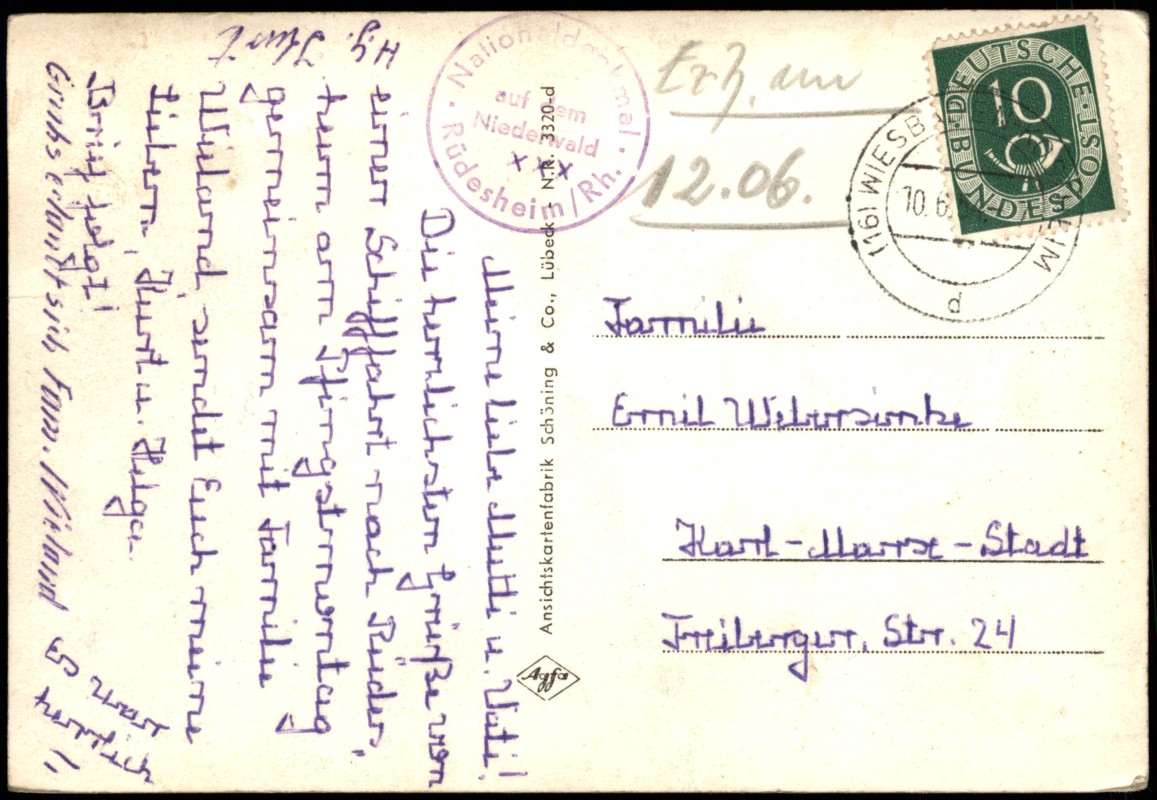 Meine liebe Mutti u. Vati!
Die herzlichsten Grüße von
einer Schiffahrt nach Rüdes-
heim am Pfingstmontag
gemeinsam mit Familie
Wieland, sendet Euch meine
Lieben, Kurt u. Helga.
Brief folgt!
Grubs erlaubt sich Fam. Wieland
Kurt
Nationaldenkmal
auf dem
Niederwald
xxx
Rüdesheim/Rh.
Ansichtskartenfabrik Schöning & Co., Lübeck - N.R. 3320-d
Agfa
Erh. am
12.06.
DEUTSCHE BUNDESPOST
10
(16) WIESB EIM
10.6.
d
Familie
Emil Webersinke
Karl-Marx-Stadt
Freiberger, Str. 24